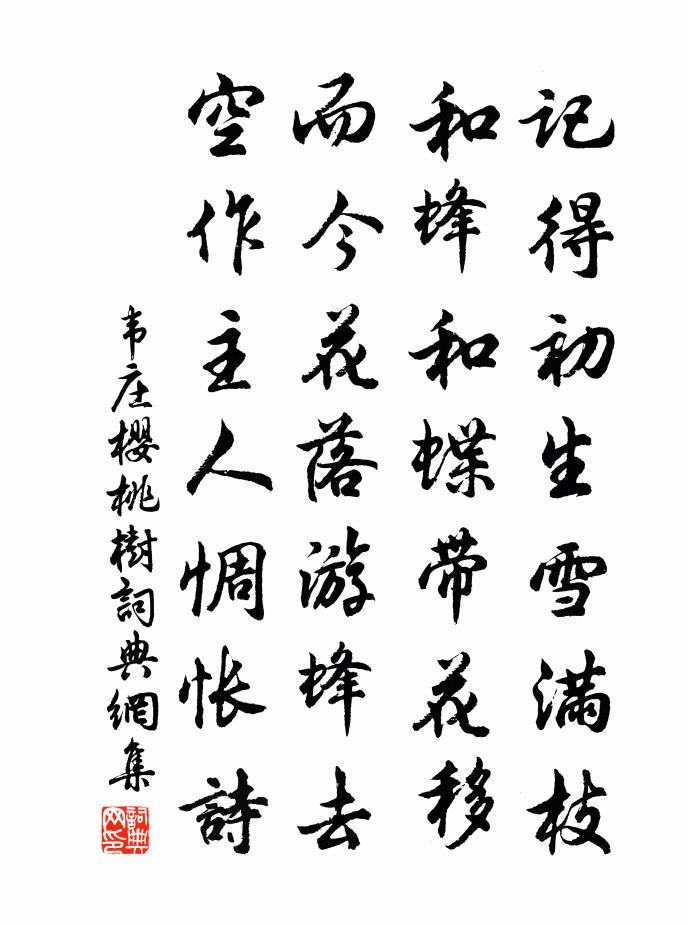 记得初生雪满枝
和蜂和蝶带花移
而今花落游蜂去
空作主人惆怅詩
韦庄櫻桃樹詞典網集
詞典网印